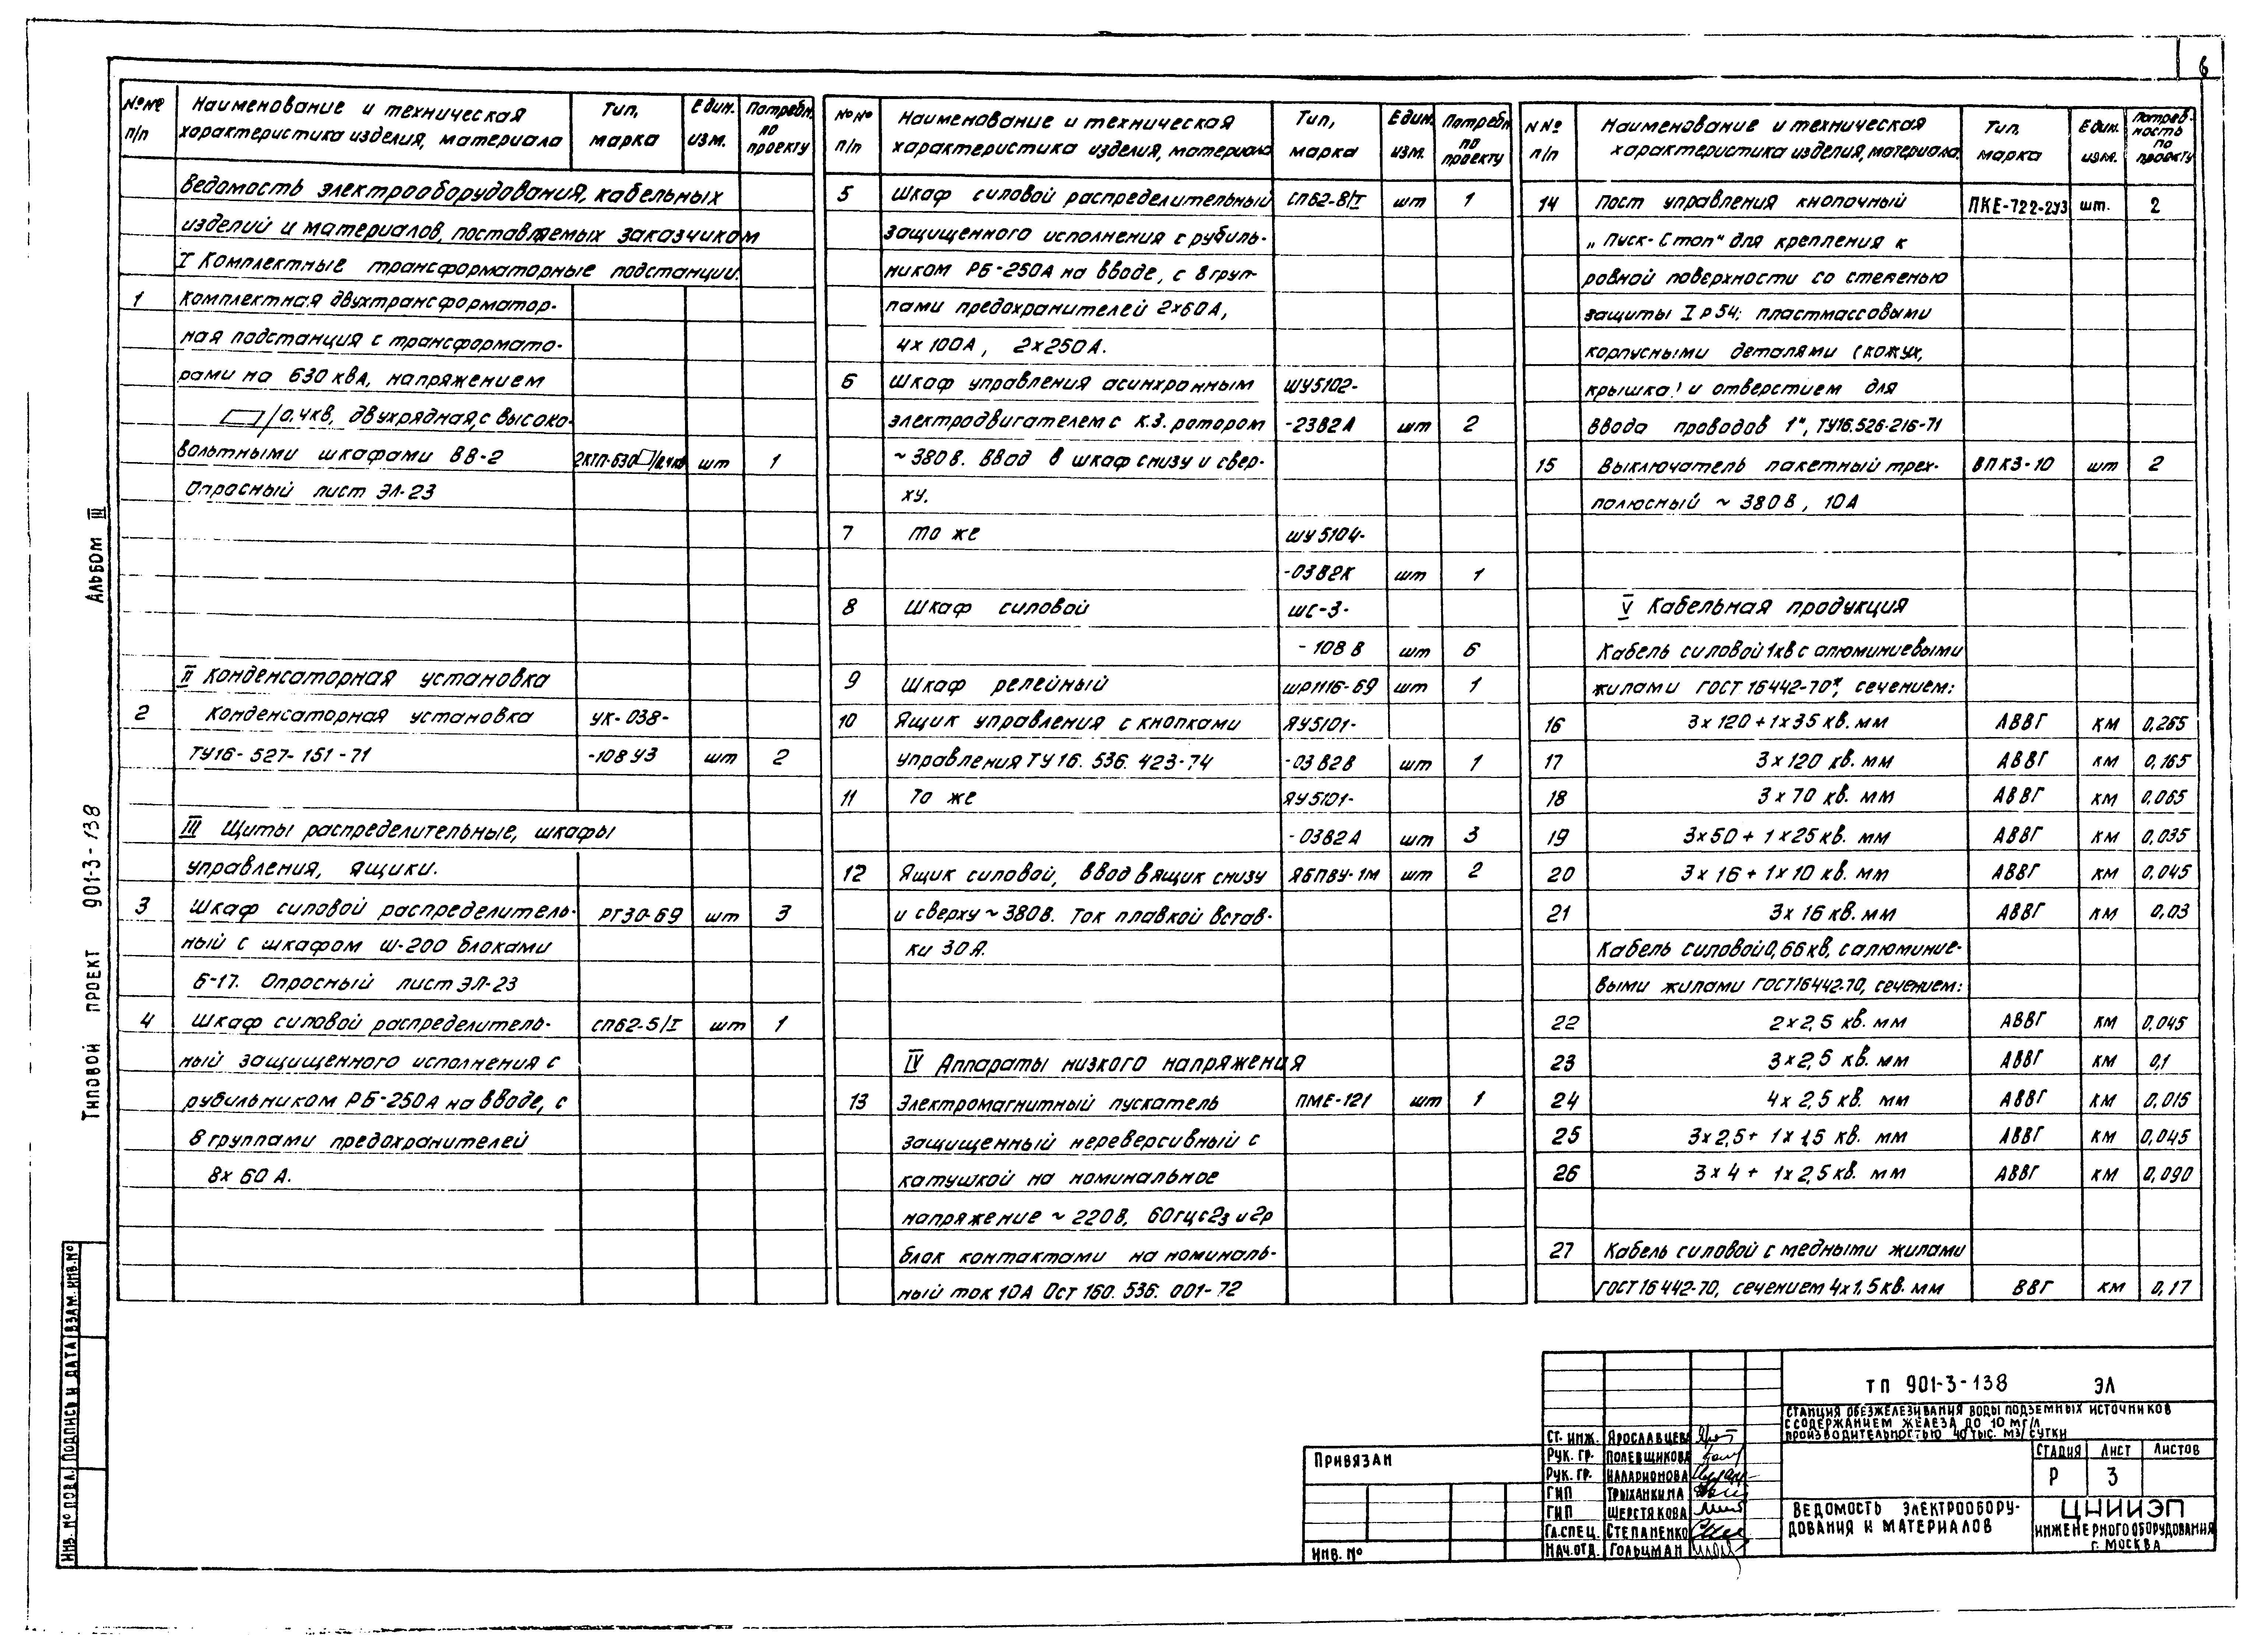 6
№№ п/п
Наименование и техническая характеристика изделия, материала
Тип, марка
Един. изм.
Потребн. по проекту
Ведомость электрооборудования, кабельных
изделий и материалов, поставляемых заказчиком
I Комплектные трансформаторные подстанции.
1 Комплектная двухтрансформатор-
ная подстанция с трансформато-
рами на 630 ква, напряжением
/0.4кв, двухрядная, с высоко-
вольтными шкафами ВВ-2 2КТП-630/0,4кв шт 1
Опросный лист ЭЛ-23
II Конденсаторная установка
2 Конденсаторная установка УК-038-
ТУ16-527-151-71 -108 У3 шт 2
III Щиты распределительные, шкафы
управления, ящики.
3 Шкаф силовой распределитель- РТ30-69 шт 3
ный с шкафом Ш-200 блоками
6-17. Опросный лист ЭЛ-23
4 Шкаф силовой распределитель- СП62-5/I шт 1
ный защищенного исполнения с
рубильником РБ-250А на вводе, с
8 группами предохранителей
8х 60 А.
№№ п/п
Наименование и техническая характеристика изделия, материала
Тип, марка
Един. изм.
Потребн по проекту
5 Шкаф силовой распределительный СП62-8/I шт 1
защищенного исполнения с рубиль-
ником РБ-250А на вводе, с 8 груп-
пами предохранителей 2х60А,
4х 100А, 2х250А.
6 Шкаф управления асинхронным ШУ5102-
электродвигателем с к.з. ротором -23В2А шт 2
~ 380 в. Ввод в шкаф снизу и свер-
ху.
7 то же ШУ 5104-
-03В2К шт 1
8 Шкаф силовой ШС-3-
-108 В шт 6
9 Шкаф релейный ШР1116-69 шт 1
10 Ящик управления с кнопками ЯУ5101-
управления ТУ 16. 536. 423-74 -03В2В шт 1
11 То же ЯУ5101-
-03В2А шт 3
12 Ящик силовой, ввод в ящик снизу ЯБПВУ-1М шт 2
и сверху ~ 380 в. Ток плавкой встав-
ки 30 А.
IV Аппараты низкого напряжения
13 Электромагнитный пускатель ПМЕ-121 шт 1
защищенный нереверсивный с
катушкой на номинальное
напряжение ~ 220 в, 60 гц с 2з и 2р
блок контактами на номиналь-
ный ток 10А Ост 160. 536. 001-72
N №п/п
Наименование и техническая характеристика изделия, материала.
Тип, марка
Един. изм.
Потреб-ность по проекту
14 Пост управления кнопочный ПКЕ-722-2У3 шт. 2
„Пуск-Стоп" для крепления к
ровной поверхности со степенью
защиты I Р 54; пластмассовыми
корпусными деталями (кожух,
крышка) и отверстием для
ввода проводов 1", ТУ16.526-216-71
15 Выключатель пакетный трех- ВПК3-10 шт 2
полюсный ~ 380 в, 10А
V Кабельная продукция
Кабель силовой 1кв с алюминиевыми
жилами ГОСТ 16442-70*, сечением:
16 3х120+1х35 кв. мм АВВГ км 0,265
17 3х120 кв. мм АВВГ км 0,165
18 3х70 кв. мм АВВГ км 0,065
19 3х50 + 1х25кв. мм АВВГ км 0,035
20 3х16 + 1х10 кв. мм АВВГ км 0,045
21 3х 16 кв. мм АВВГ км 0,03
Кабель силовой 0,66кв, с алюминие-
выми жилами ГОСТ16442-70, сечением:
22 2х2,5 кв. мм АВВГ км 0,045
23 3х2,5 кв. мм АВВГ км 0,1
24 4х 2,5 кв. мм АВВГ км 0,015
25 3х2,5+ 1х1,5 кв. мм АВВГ км 0,045
26 3х4 + 1х2,5 кв. мм АВВГ км 0,090
27 Кабель силовой с медными жилами
ГОСТ16442-70, сечением 4х1,5кв. мм ВВГ км 0,17
Альбом III
Типовой проект 901-3-138
Инв. № подл. Подпись и дата Взам. инв. №
Привязан
Инв. №
ТП 901-3-138 ЭЛ
Станция обезжелезивания воды подземных источников
с содержанием железа до 10 мг/л
производительностью 40 тыс. м3/сутки
Ст. инж. Ярославцева
Рук. гр. Полевщикова
Рук. гр. Илларионова
ГИП Трыханкина
ГИП Шерстякова
Гл. спец. Степаненко
Нач. отд. Гольцман
Стадия Лист Листов
Р 3
Ведомость электрообору-
дования и материалов
ЦНИИЭП
инженерного оборудования
г. Москва